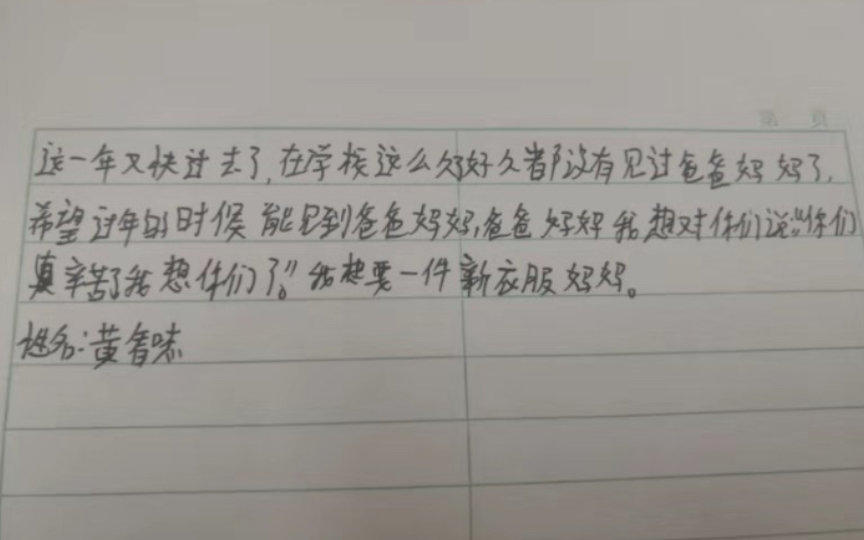 这一年又快过去了,在学校这么久好久都没有见过爸爸妈妈了,
希望过年的时候能见到爸爸妈妈,爸爸妈妈我想对你们说:“你们
真辛苦了我想你们了。”我想要一件新衣服妈妈。
姓名:黄香味